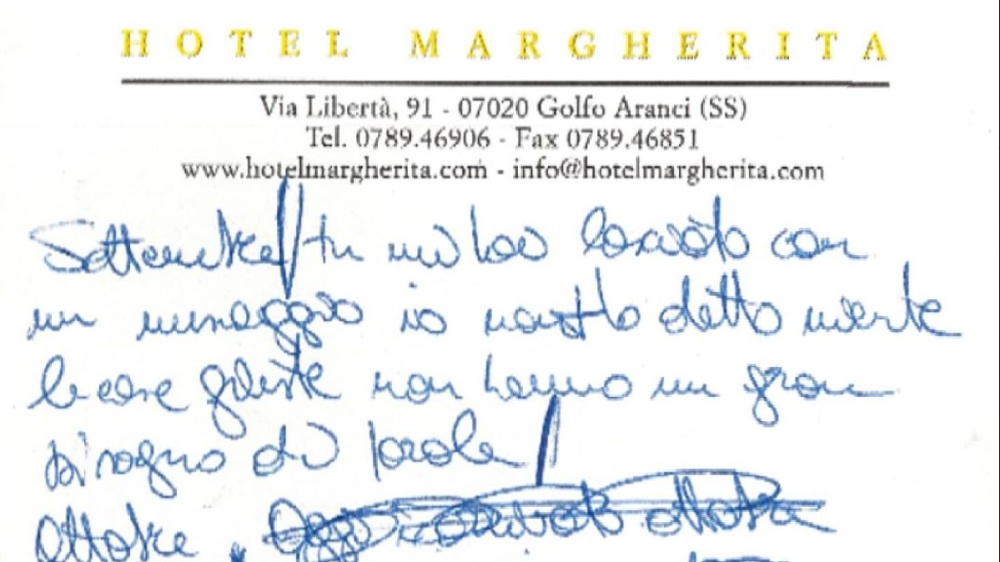 HOTEL MARGHERITA
Via Libertà, 91 - 07020 Golfo Aranci (SS)
Tel. 0789.46906 - Fax 0789.46851
www.hotelmargherita.com - info@hotelmargherita.com
Settembre tu mi hai lasciato con
un messaggio io non ti ho detto niente
le cose giuste non hanno un gran
bisogno di parole
Ottobre